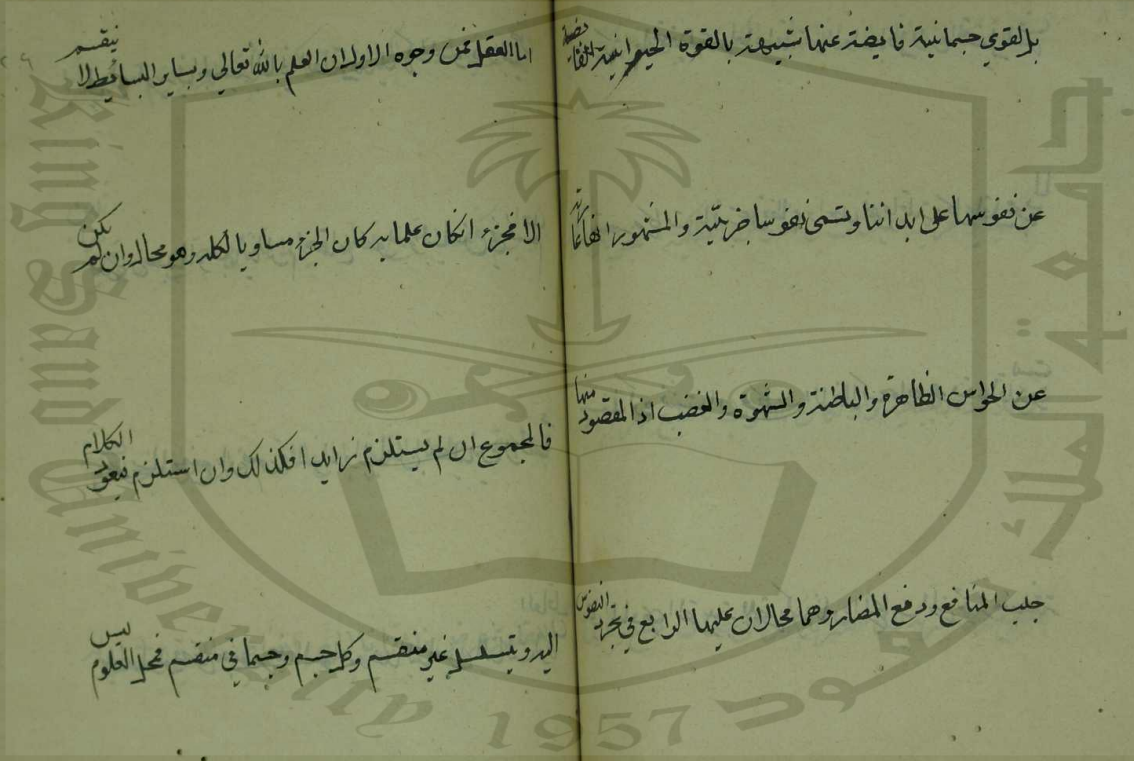 بل لقوي جسمانية فايضة عنها شبيهة بالقوة الحيوانية الفايضة
عن نفوسها على ابداننا وتسمى نفوسا جزئية والمشهور انها عرية
عن الحواس الظاهرة والباطنة والشهوة والغضب اذ المقصود منها
جلب المنافع ودفع المضار وهما محالان عليها الرابع في تجرد النفوس
اما العقل فمن وجوه الاول ان العلم بالله تعالي وبساير البسايط لا ينقسم
الا فجزءه انكان علما به كان الجزء مساويا لكله وهو محال وان لم يكن
فالمجموع ان لم يستلزم زايدا فكذلك وان استلزم فيعود الكلام
اليه ويتسلسل غير منقسم وكل جسم وجسماني منقسم فمحل العلوم ليس
King Saud University
1957
جامعة الملك سعود